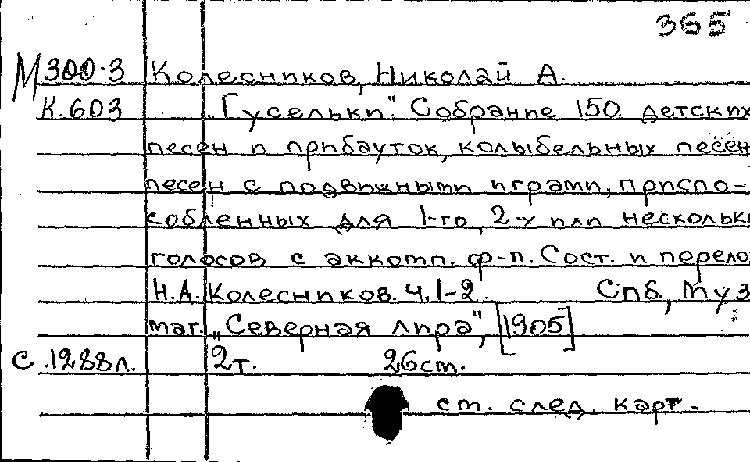 365
М 300-3 Колесников, Николай А.
К.603 „Гусельки". Собрание 150 детских
песен и прибауток, колыбельных песен
песен с подвижными играми, приспо-
собленных для 1-го, 2-х или нескольк
голосов с аккомп. ф-п. Сост. и перело
Н.А. Колесников. Ч.1-2. Спб, Муз
маг. „Северная лира", [1905]
С.1288л. 2т. 26см.
см. след. карт.